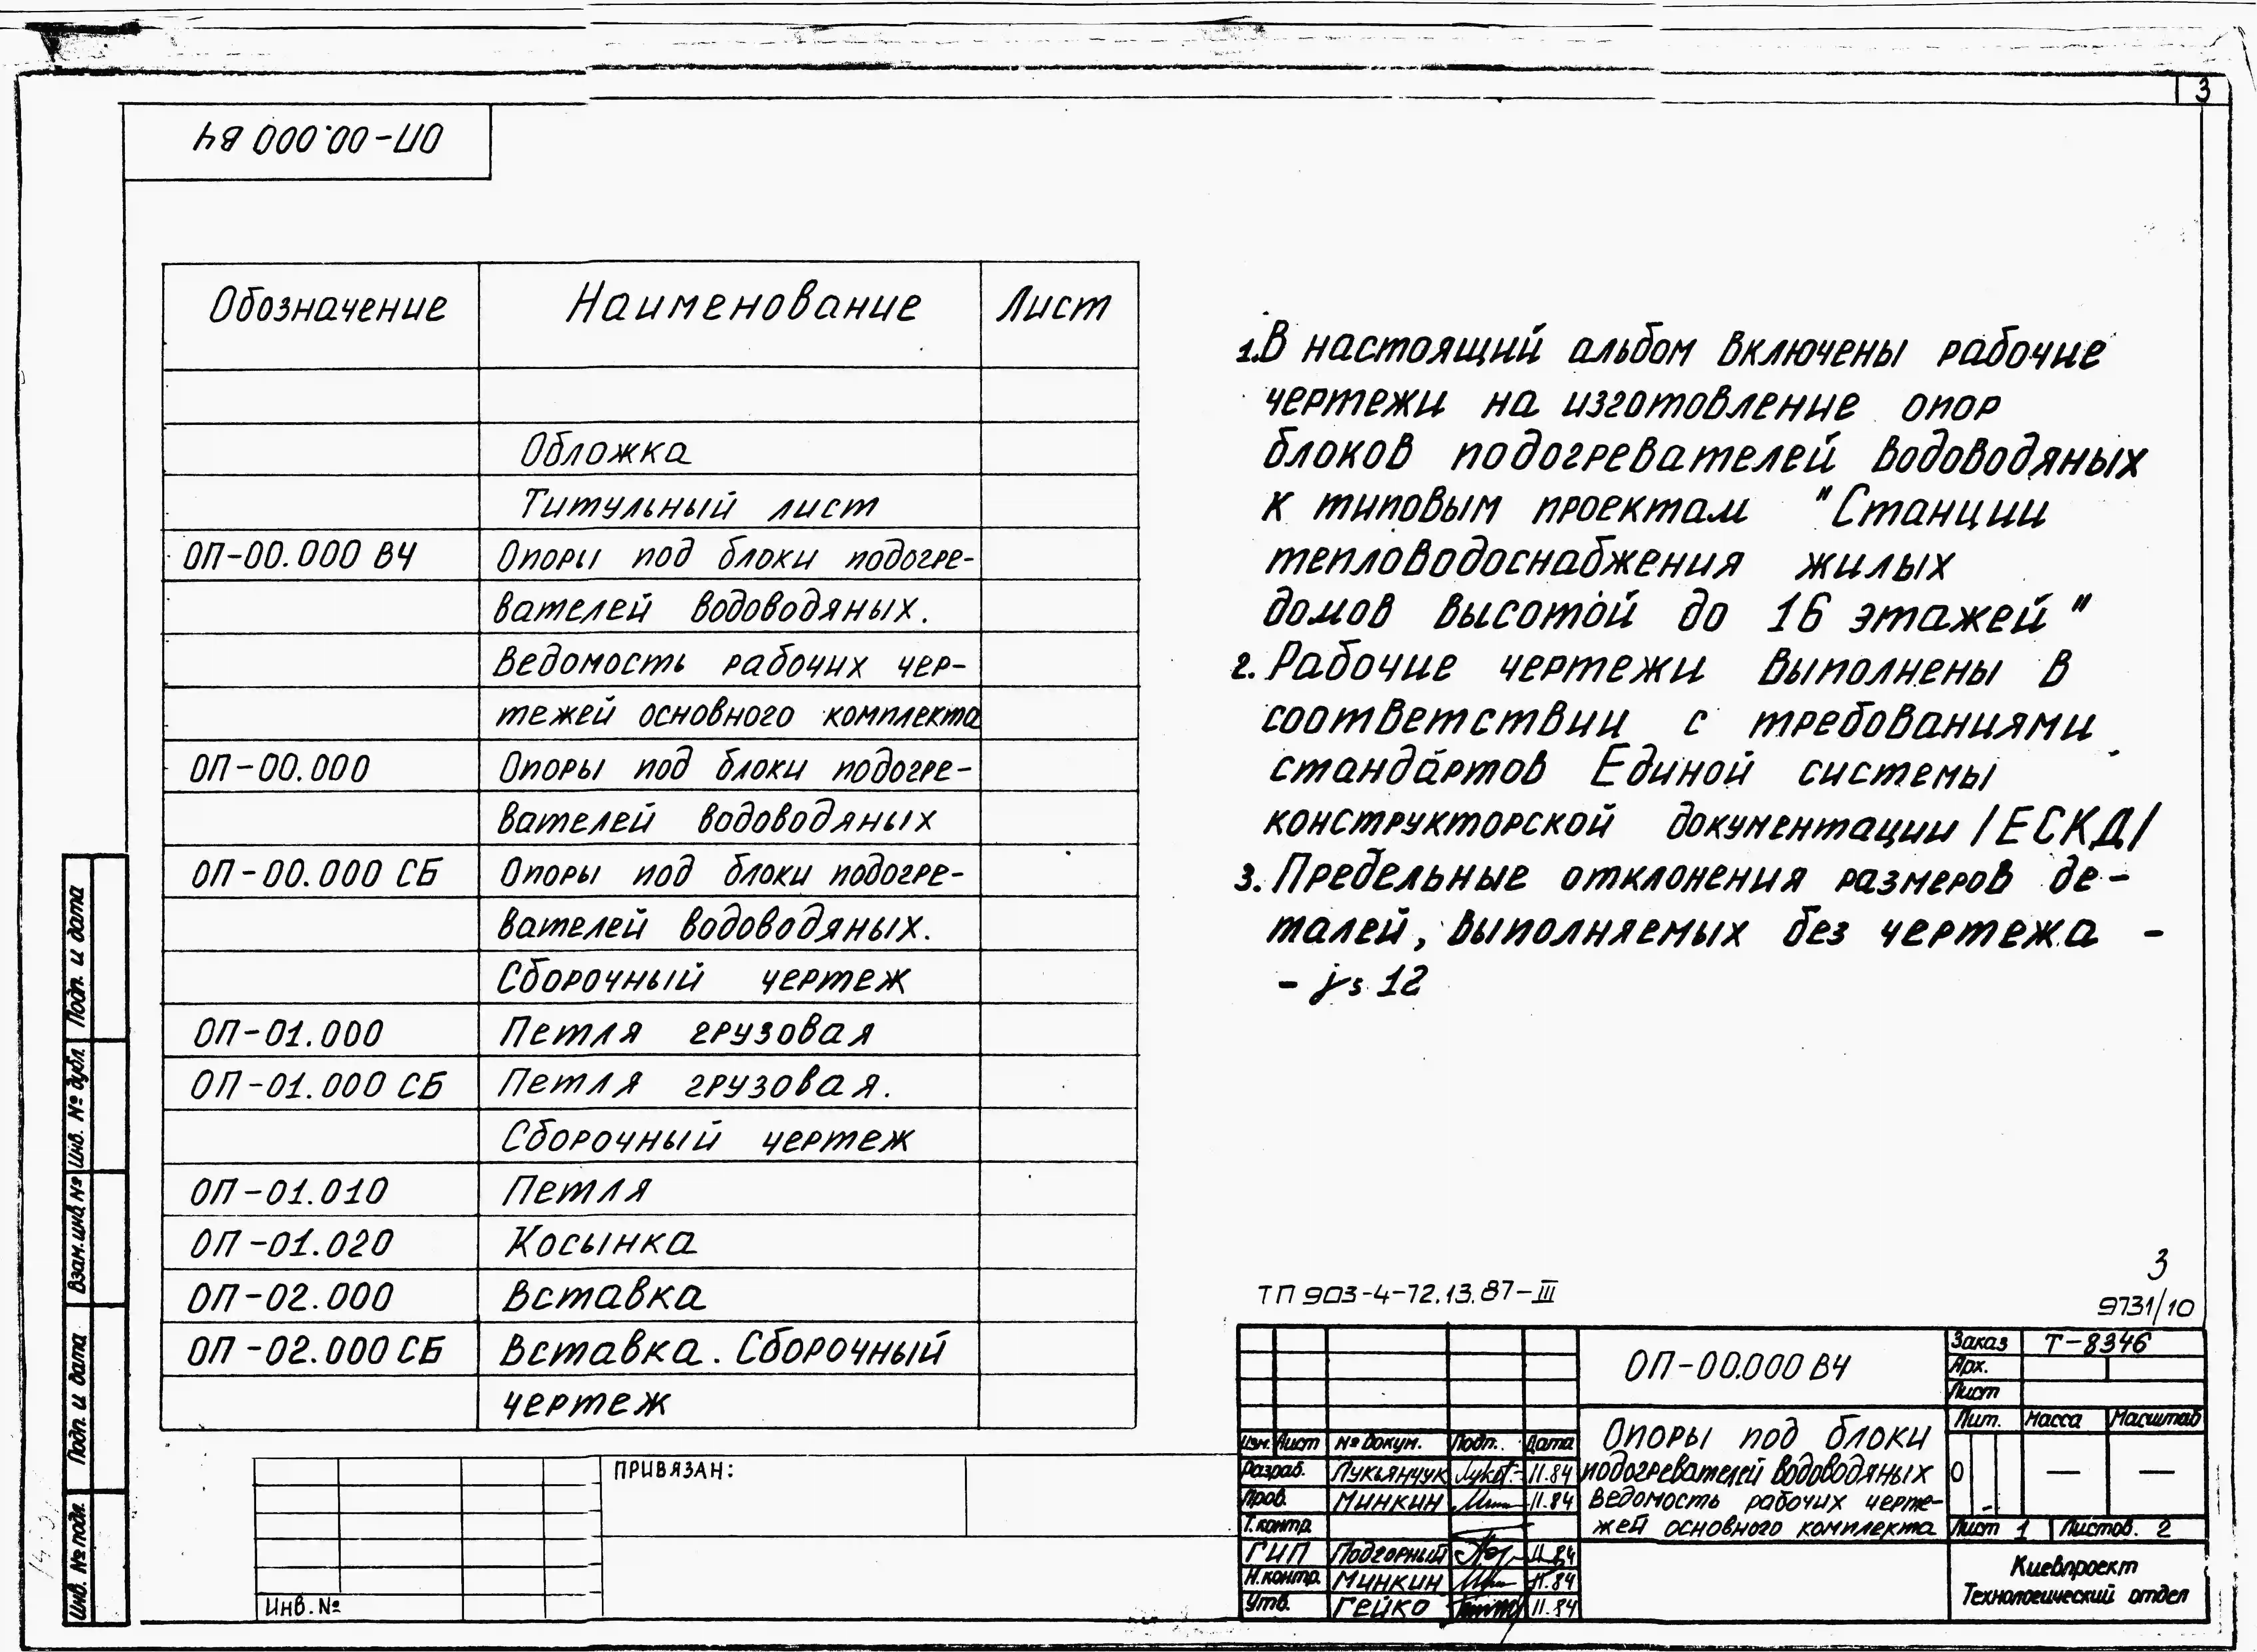 3
ОП-00.000 ВЧ
Обозначение Наименование Лист
Обложка
Титульный лист
ОП-00.000 ВЧ Опоры под блоки подогре-
вателей водоводяных.
Ведомость рабочих чер-
тежей основного комплекта
ОП-00.000 Опоры под блоки подогре-
вателей водоводяных
ОП-00.000 СБ Опоры под блоки подогре-
вателей водоводяных.
Сборочный чертеж
ОП-01.000 Петля грузовая
ОП-01.000 СБ Петля грузовая.
Сборочный чертеж
ОП-01.010 Петля
ОП-01.020 Косынка
ОП-02.000 Вставка
ОП-02.000 СБ Вставка. Сборочный
чертеж
1. В настоящий альбом включены рабочие
чертежи на изготовление опор
блоков подогревателей водоводяных
к типовым проектам "Станции
тепловодоснабжения жилых
домов высотой до 16 этажей"
2. Рабочие чертежи выполнены в
соответствии с требованиями
стандартов Единой системы
конструкторской документации /ЕСКД/
3. Предельные отклонения размеров де-
талей, выполняемых без чертежа -
- js 12
3
ТП 903-4-72.13.87-III
9731/10
ОП-00.000 ВЧ
Заказ Т-8346
Арх.
Лист
Лит. Масса Масштаб
О — —
Лист 1 Листов. 2
Опоры под блоки
подогревателей водоводяных
Ведомость рабочих черте-
жей основного комплекта
Киевпроект
Технологический отдел
Изм. Лист № докум. Подп. Дата
Разраб. Лукьянчук 11.84
Пров. Минкин 11.84
Т.контр.
ГИП Подгорный 11.84
Н.контр. Минкин 11.84
Утв. Гейко 11.84
ПРИВЯЗАН:
Инв. №
Подп. и дата
Инв. № дубл.
Взам. инв. №
Подп. и дата
Инв. № подл.